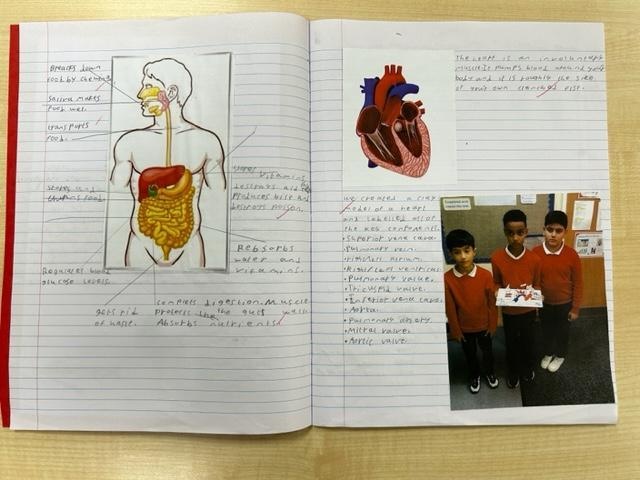 Breaks down
food by chewing
Saliva makes
food wet.
transports
food.
Stores and
churns food.
Regulates blood
glucose levels.
gets rid
of waste.
stores vitamins
destroys
Produces bile and
destroys poison.
Reabsorbs
water and
vitamins.
complets digestion. Muscle
protects the guts walls
Absorbs nutrients
The heart is an involuntary
muscle. Pumps blood around your
body and it is roughly the size
of your own clenched fist.
we created a clay
model of a heart
and labelled all of
the key components.
• Superior vena cava.
• Pulmonary vein.
• Pulmonary valve.
• Tricuspid valve.
• Inferior vena cava.
• Aorta.
• Pulmonary artery.
• Mitral valve.
• Aortic valve.